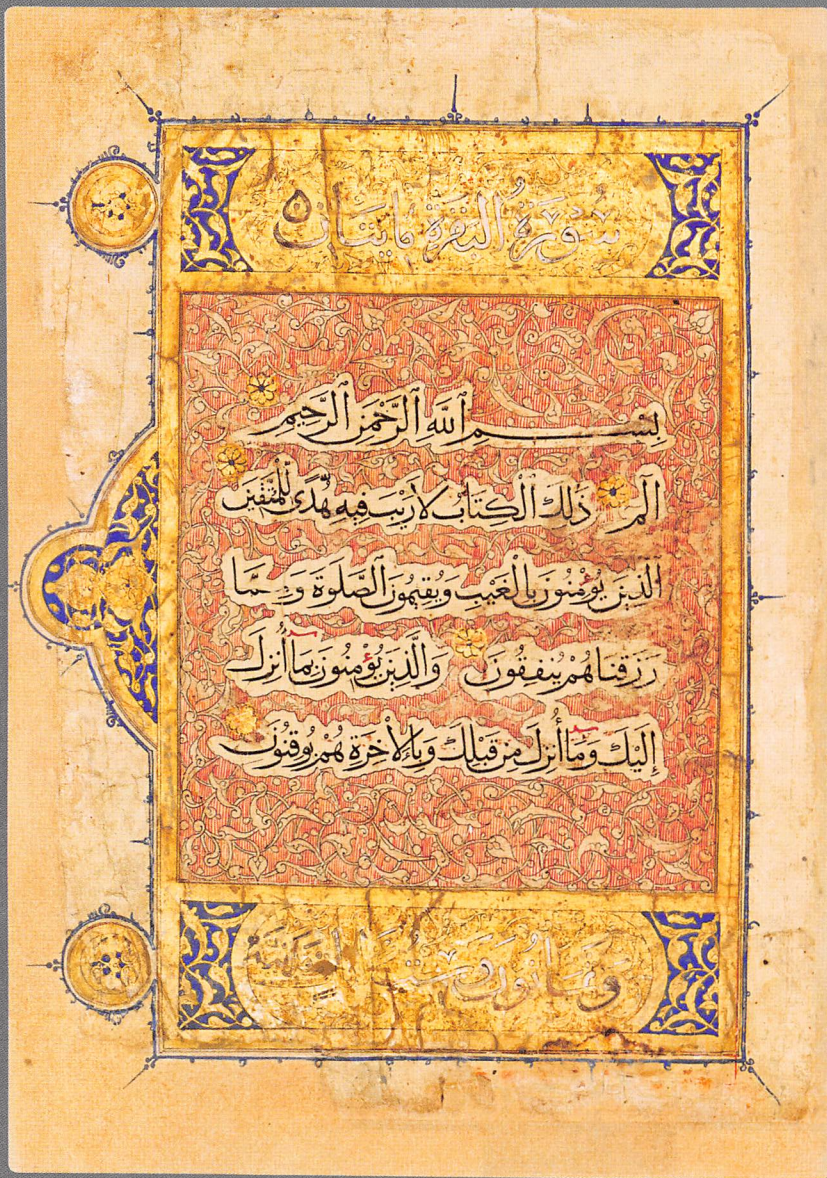 سُورَةُ البَقَرَةِ مايتان
بِسْمِ ٱللَّهِ ٱلرَّحْمَٰنِ ٱلرَّحِيمِ
الٓمٓ ذَٰلِكَ الْكِتَابُ لَا رَيْبَ فِيهِ هُدًى لِلْمُتَّقِينَ
الَّذِينَ يُؤْمِنُونَ بِالْغَيْبِ وَيُقِيمُونَ الصَّلَوةَ وَمِمَّا
رَزَقْنَاهُمْ يُنْفِقُونَ وَالَّذِينَ يُؤْمِنُونَ بِمَآ أُنْزِلَ
إِلَيْكَ وَمَآ أُنْزِلَ مِنْ قَبْلِكَ وَبِالْأَخِرَةِ هُمْ يُوقِنُونَ
وثمانون وست